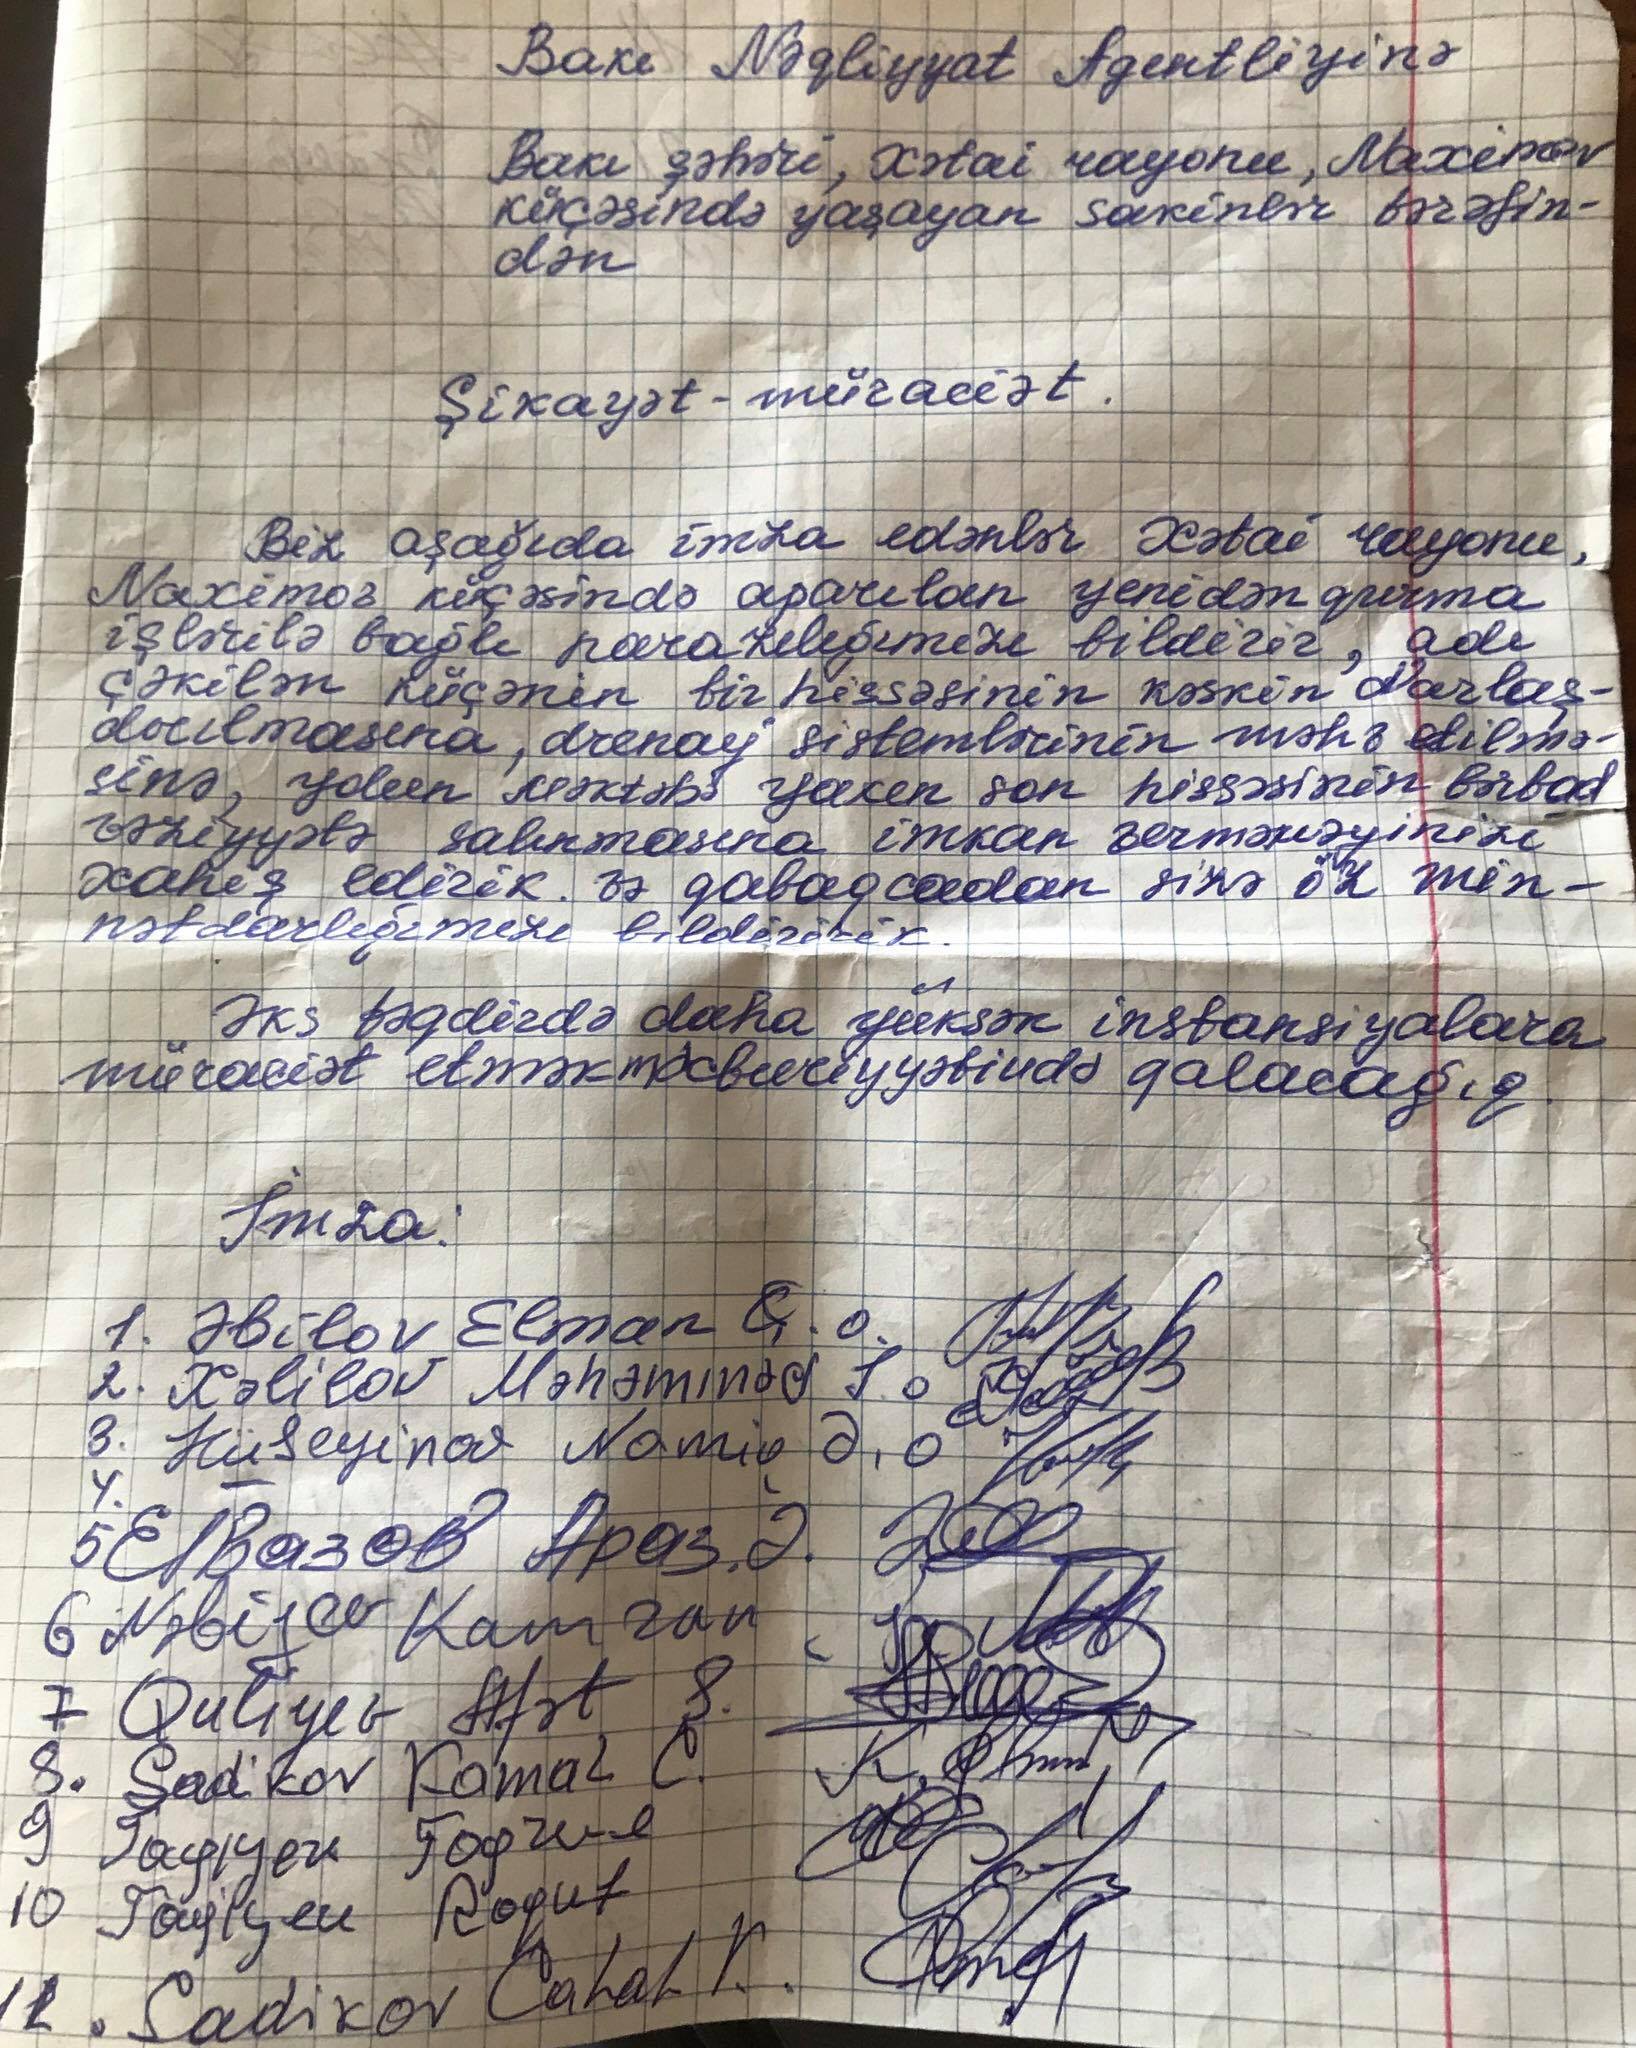 Bakı Nəqliyyat Agentliyinə
Bakı şəhəri, Xətai rayonu, Naximov
küçəsində yaşayan sakinlər tərəfin-
dən
Şikayət-müraciət.
Biz aşağıda imza edənlər Xətai rayonu,
Naximov küçəsində aparılan yenidənqurma
işlərilə bağlı narazılığımızı bildirir, adı
çəkilən küçənin bir hissəsinin kəskin darlaş-
dırılmasına, drenaj sistemlərinin məhv edilmə-
sinə, yolun məktəbə yaxın son hissəsinin bərbad
vəziyyətə salınmasına imkan verməməyinizi
xahiş edirik. və qabaqcadan sizə öz min-
nətdarlığımızı bildiririk.
Əks təqdirdə daha yüksək instansiyalara
müraciət etmək məcburiyyətində qalacağıq.
İmza:
1. Əbilov Elman Q.o.
2. Xəlilov Məhəmməd İ.o
3. Hüseyinov Namiq Ə.o
4.
5 Ейвазов Араз.Ə.
6 Nəbiyev Kamran
7 Quliyev Afət Ş.
8. Sadikov Kamal C.
9 Tagıyev Togrul
10 Tagıyev
11. Sadikov Calal K.